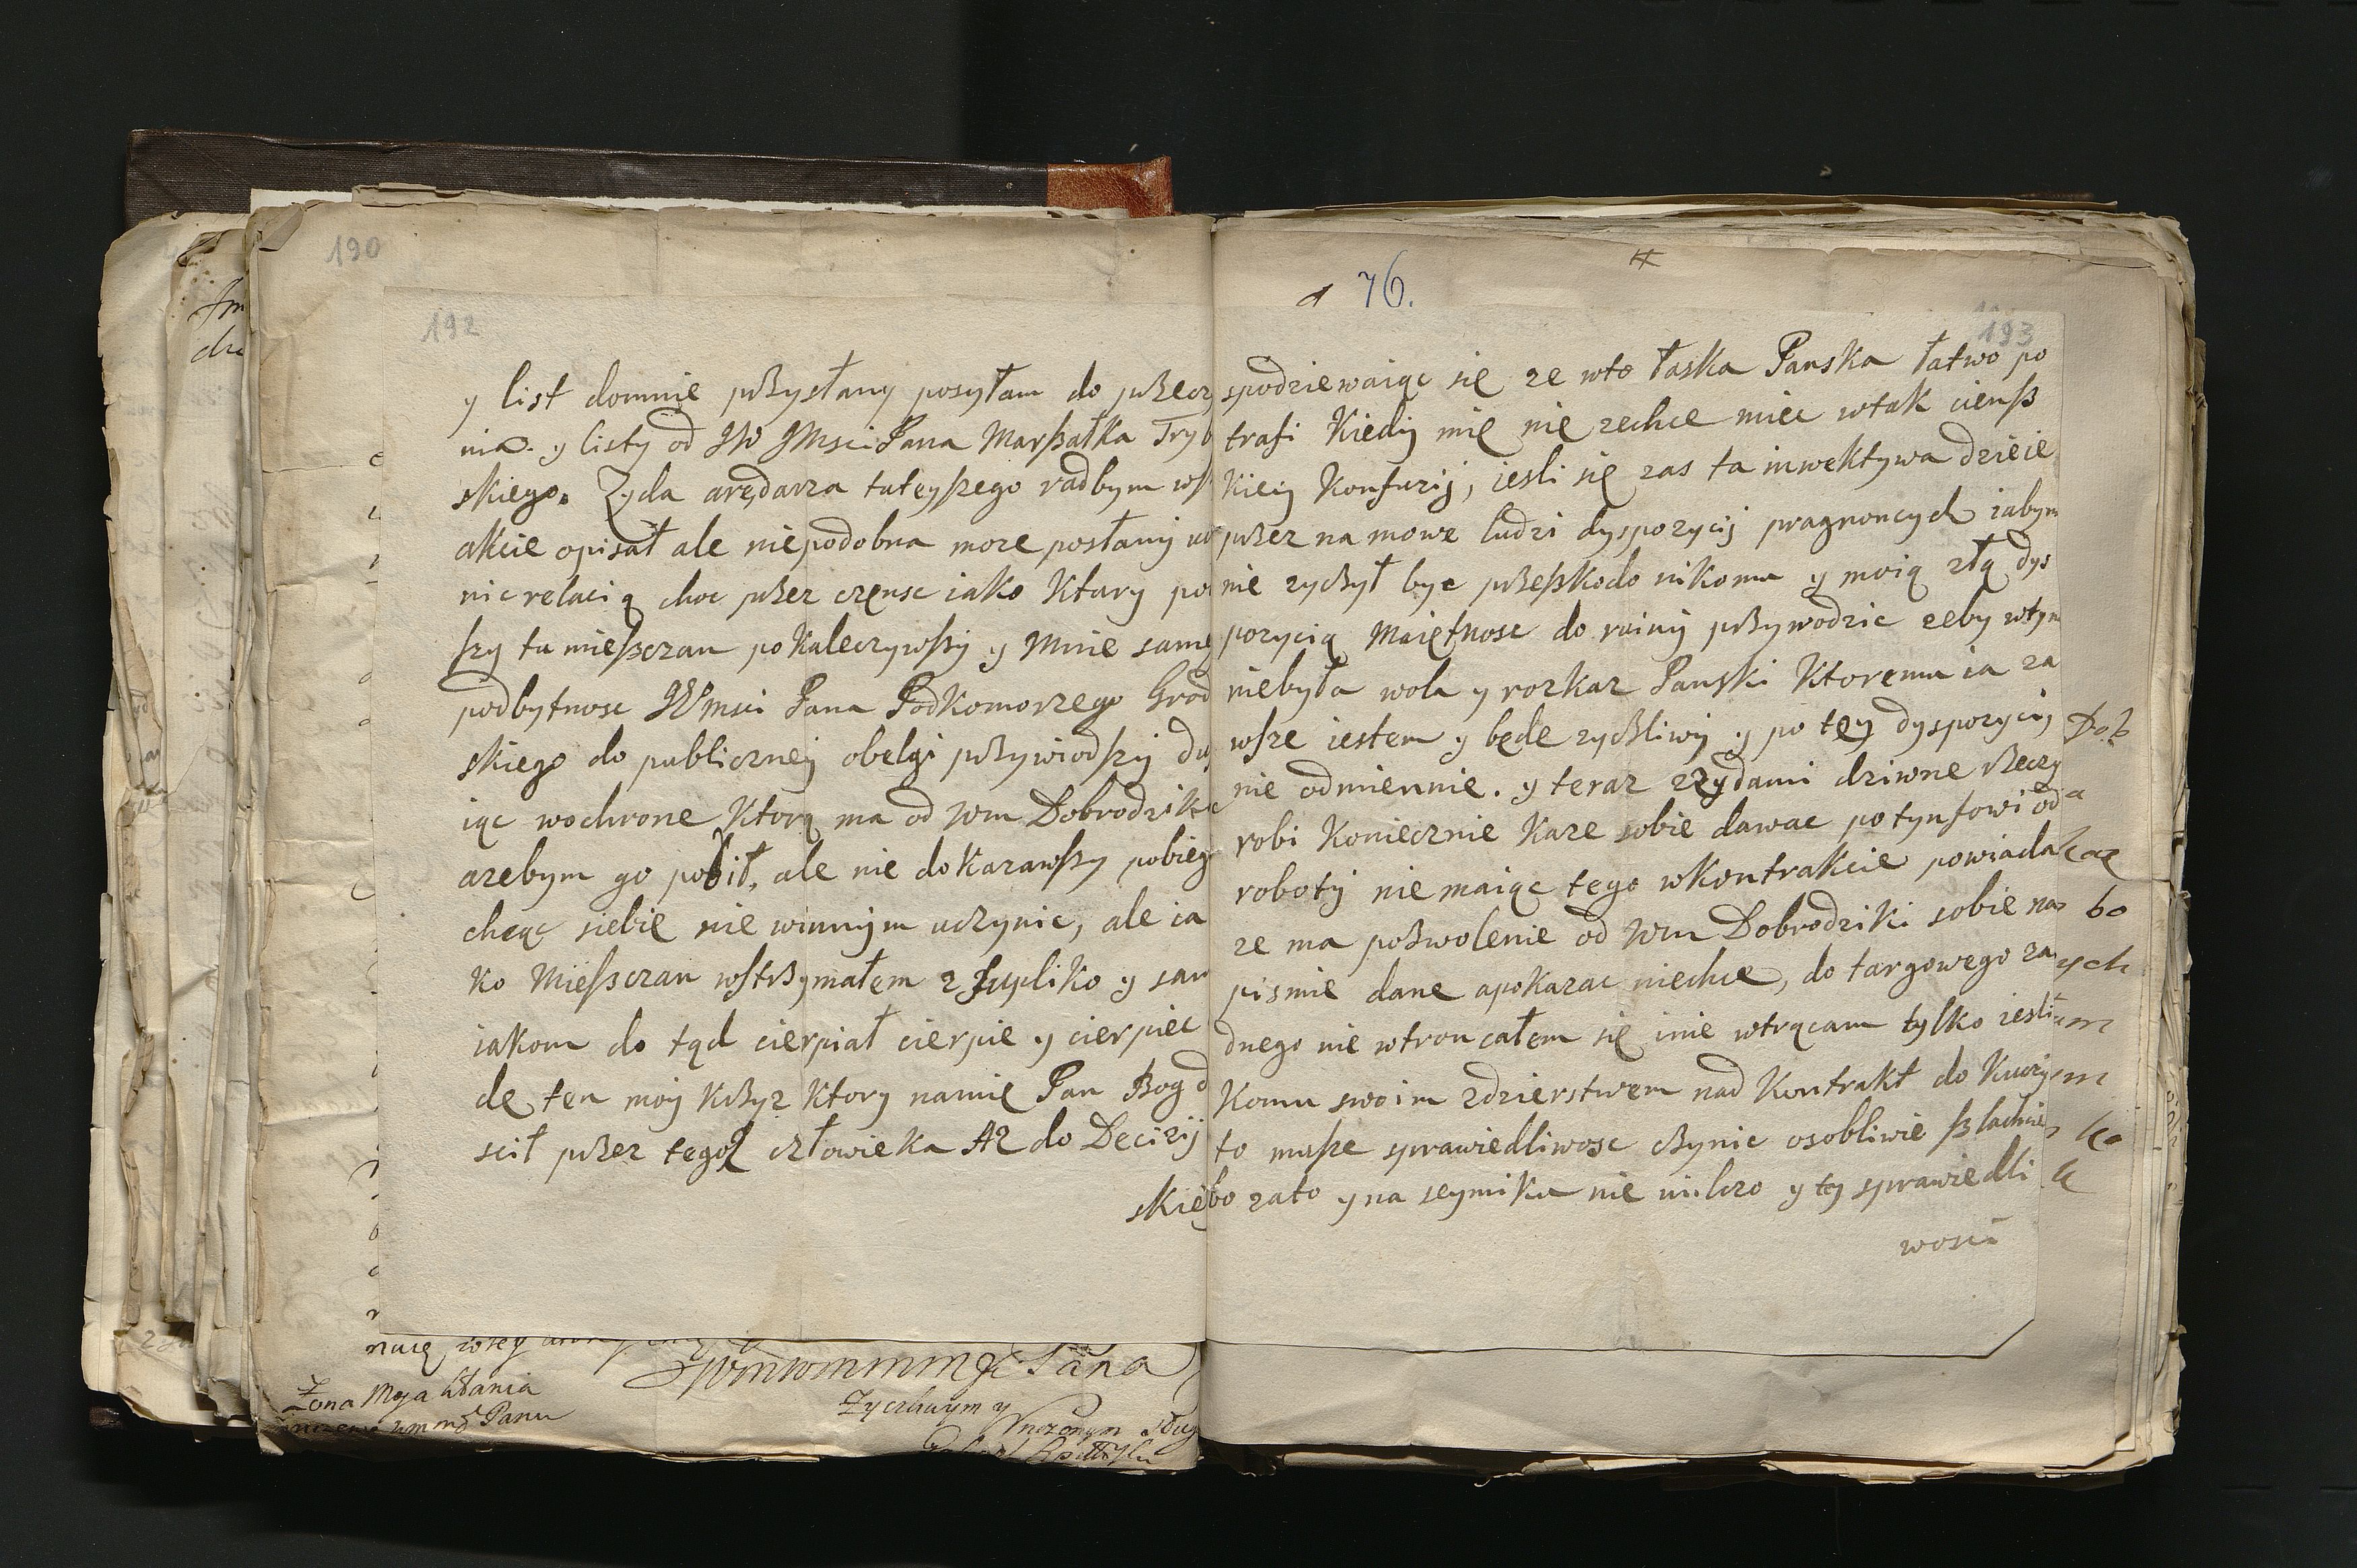 190
192
y list domnie przysłany posyłam do przecz
nia. y listy od JW JMsci Pana Marszałka Tryb
skiego. Zyda arędarza tuteyszego radbym ws
akcie opisał ale niepodobna moze posłany
nic relacią choc przez czensc iako Ktory po
szy tu mieszczan poKaleczywszy y Mnie same
podbytnosc JWmsci Pana PodKomorzego Grod
skiego do publiczney obelgi przywiodszy du
iąc wochrone Ktorą ma od Wm Dobrodziki
azebym go pobił, ale nie doKazawszy pobieg
chcąc siebie nie winnym uczynic, ale ia
Ko Mieszczan wstrzymałem z Supliko y sam
iakom do tąd cierpiał cierpie y cierpiec
dę ten moy Krzyz Ktory namię Pan Bog d
scił przez tegoz człowieKa Az do Decizij
skie
76.
193
spodziewaiąc się ze wto łaska Panska łatwo po
trafi Kiedy mię nie zechce miec wtak ciensz
Kiey Konfuzij, iesli się zas ta inwektywa dzieie
przez na mowe ludzi dyspozycij pragnoncych iabym
nie zyczył byc przeszkodo nikomu y moią złą dys
pozycią Maiętnosc do ruiny przywodzic zeby wtym
niebyła wola y rozkaz Panski Ktoremu ia za
wsze iestem y będe zyczliwy y po tey dyspozycij
nie odmiennie. y teraz zzydami dziwne rzeczy
robi Koniecznie Kaze sobie dawac po tynfowi od
roboty nie maiąc tego wKontrakcie powiada
ze ma pozwolenie od Wm Dobrodziki sobie na
pismie dane apoKazac niechce, do targowego za
dnego nie wtroncałem się inie wtrącam tylko iesli
Komu swoim zdzierstwem nad Kontrakt do Kuczy
to musze sprawiedliwosc czynic osobliwie szlachcie
bo zato y na seymiku nie milczo y tey sprawiedli
wosci
bo
ych
nuię
Zona Moja kłania
Wm md Panu
Pana
Zyczliwym y
Unizonym Sług